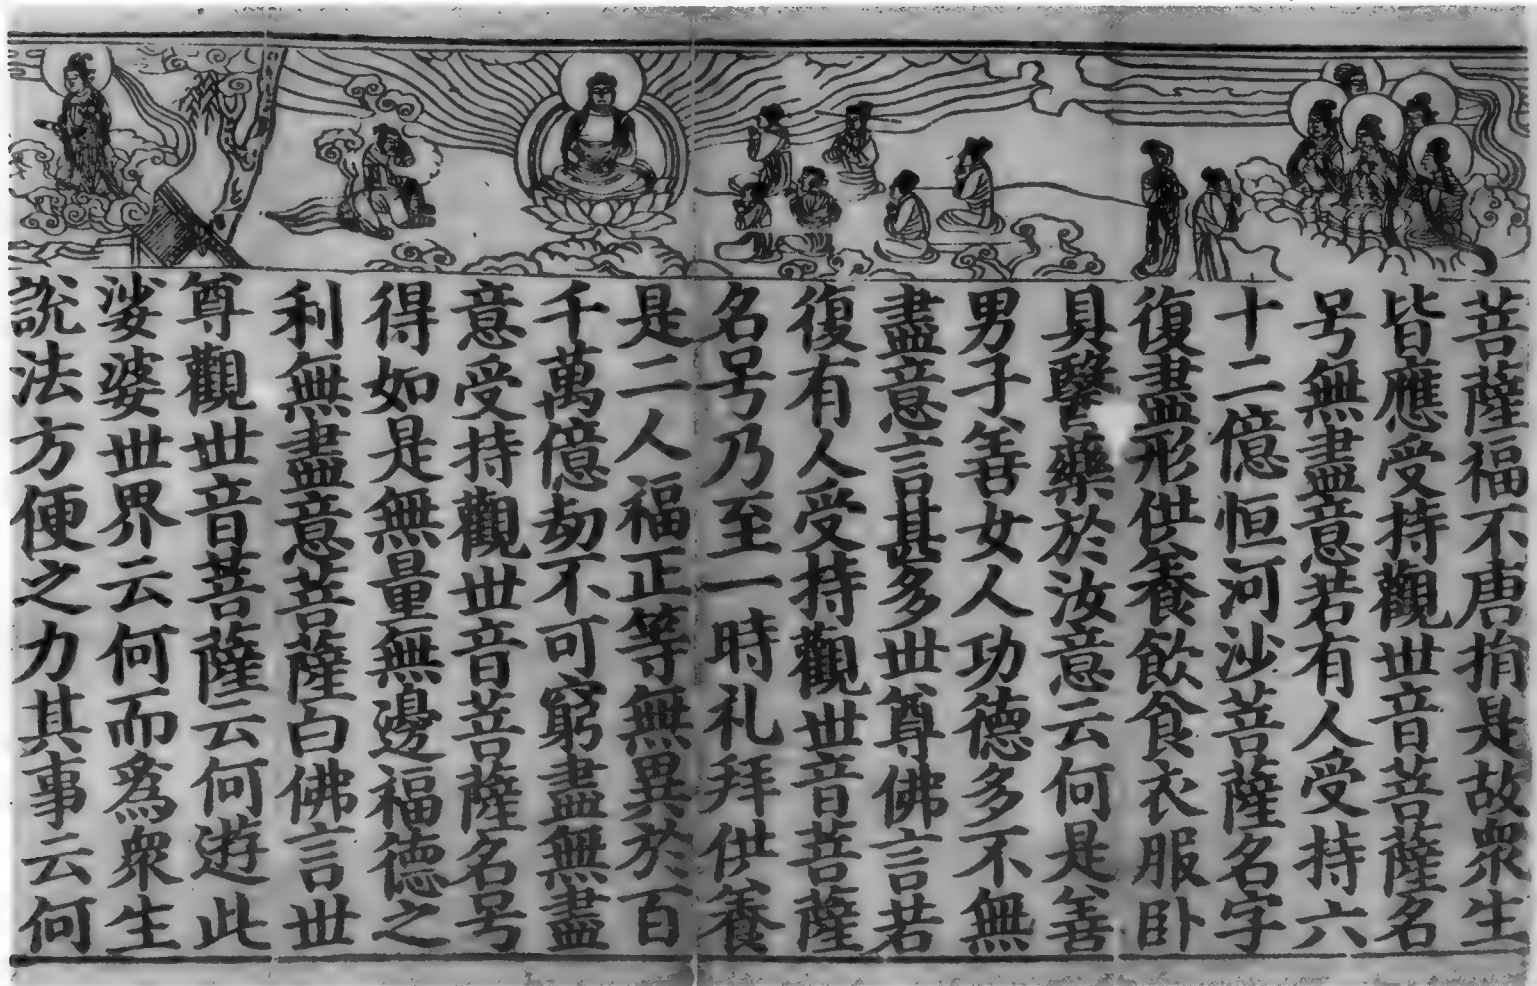 菩薩福不唐捐是故衆生
皆應受持觀世音菩薩名
号無盡意若有人受持六
十二億恒河沙菩薩名字
復盡形供養飲食衣服卧
具毉藥於汝意云何是善
男子善女人功德多不無
盡意言甚多世尊佛言若
復有人受持觀世音菩薩
名号乃至一時礼拜供養
是二人福正等無異於百
千萬億劫不可窮盡無盡
意受持觀世音菩薩名号
得如是無量無邊福德之
利無盡意菩薩白佛言世
尊觀世音菩薩云何遊此
娑婆世界云何而爲衆生
說法方便之力其事云何